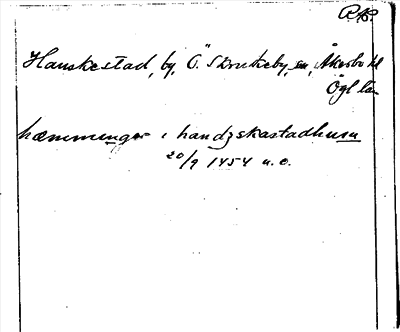 P.Ä.
Hanskestad, by, Ö. Stenkeby, sn, Åkerbo hd
Ögl. län
hæmmingær i handzskastadhusu
20/9 1454 u. o.